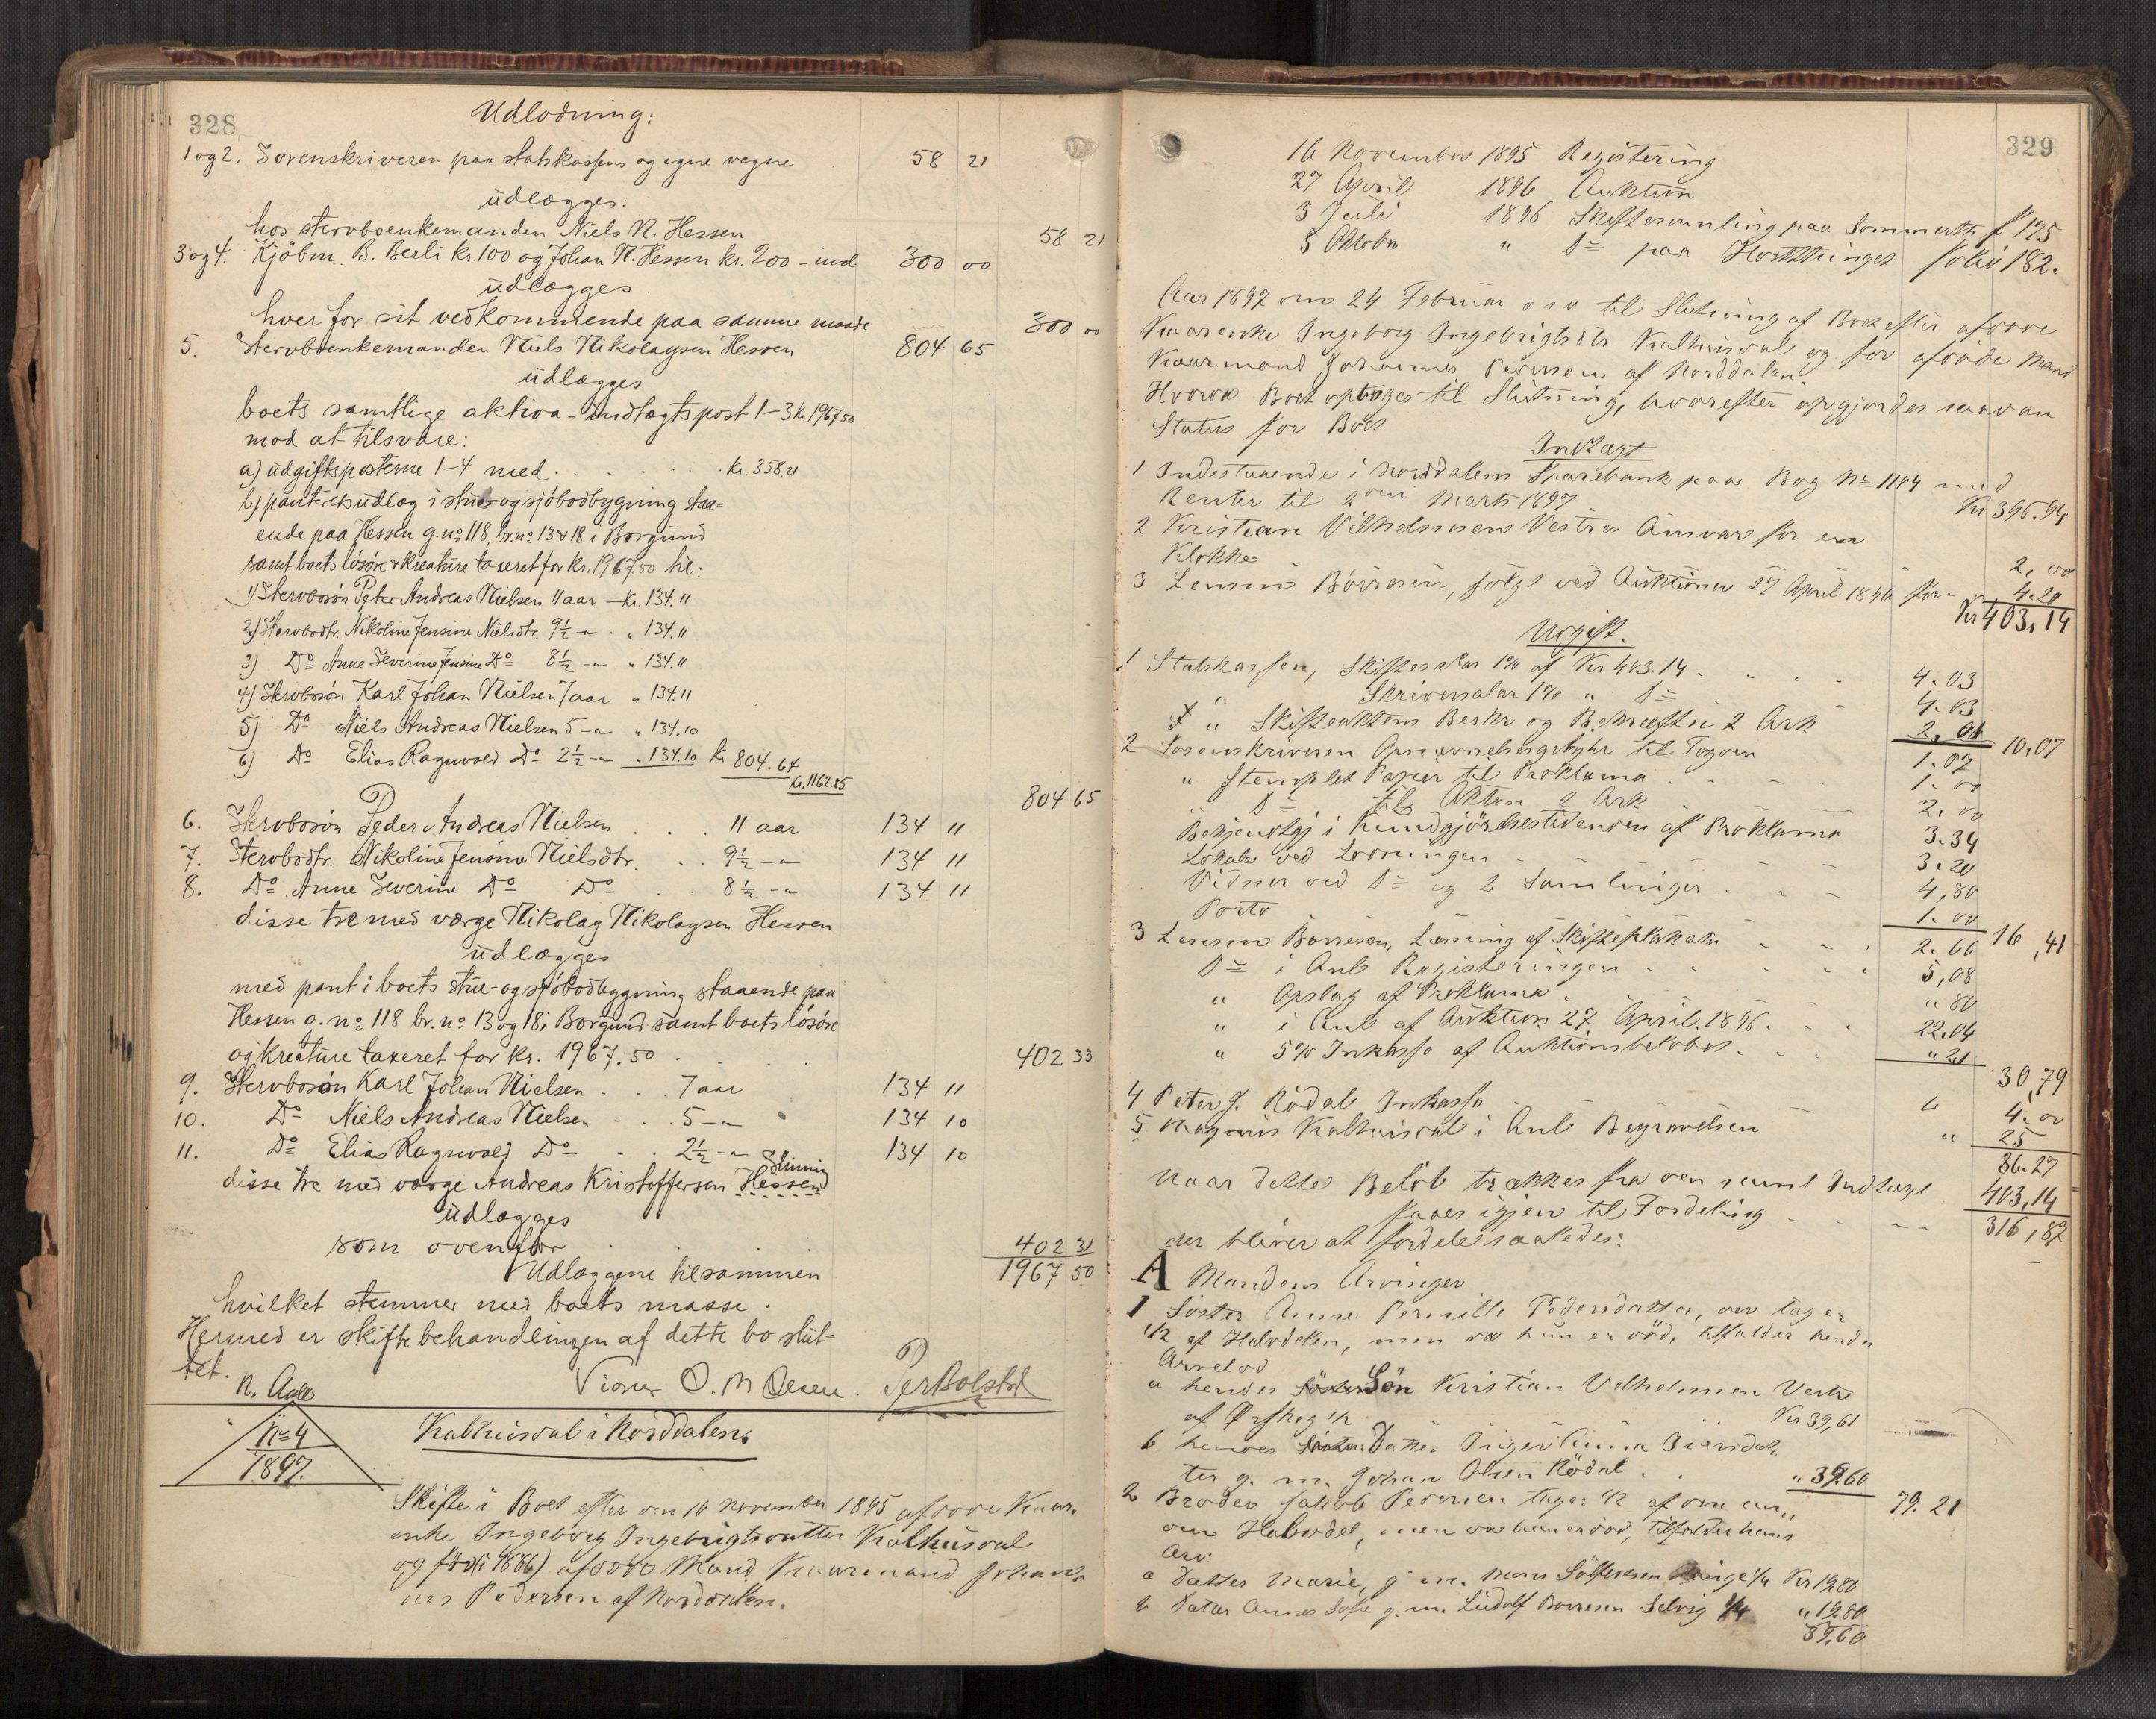 328
Udlodning:
1 og 2. Sorenskriveren paa statskassens og egne vegne 58 21
udlægges:
hos stervboenkemanden Niels N. Hessen 58 21
3 og 4. Kjöbm. B. Berli kr. 100 og Johan N. Hessen kr. 200 - 300 00
udlægges
hver for sit vedkommende paa samme maade 300 00
5. Stervboenkemanden Niels Nikolaysen Hessen 804 65
udlægges
boets samtlige aktiva - indtægtspost 1-3 kr. 1967.50
mod at tilsvare:
a) udgiftsposterne 1-4 med . . . . kr. 358.21
b) panteretsudlæg i stue- og sjöbodbygning staa=
ende paa Hessen g. no 118, br. no 13 & 18 i Borgund
samt boets lösöre & kreature taxeret for kr. 1967.50 til:
1) Stervbosön Peter Andreas Nielsen 11 aar - kr. 134."
2) Stervbodtr. Nikoline Jensine Nielsdtr. 9½ - " - " 134."
3) Do Anne Severine Jensine Do 8½ - " - " 134."
4) Stervbosön Karl Johan Nielsen 7 aar " 134."
5) Do Niels Andreas Nielsen 5 - " " 134.10
6) Do Elias Ragnvald Do 2½ - " " 134.10 kr. 804.64
kr. 1162.85
804 65
6. Stervbosön Peder Andreas Nielsen . . . 11 aar 134 "
7. Stervbodtr. Nikoline Jensine Nielsdtr. . . 9½ - " 134 "
8. Do Anne Severine Do Do . . 8½ - " 134 "
disse tre med værge Nikolay Nikolaysen Hessen
udlægges
med pant i boets stue- og sjöbodbygning staaende paa
Hessen g. no 118 br. no 13 og 18 i Borgund samt boets lösöre
og kreature taxeret for kr. 1967.50 . . . . 402 33
9. Stervbosön Karl Johan Nielsen . . . 7 aar 134 "
10. Do Niels Andreas Nielsen . . . 5 - " 134 10
11. Do Elias Ragnvald Do - . . 2½ - " 134 10
Slinning
disse tre med værge Andreas Kristoffersen Hessen
udlægges
som ovenfor . . . . 402 31
Udlæggene tilsammen 1967 50
hvilket stemmer med boets masse.
Hermed er skiftebehandlingen af dette bo slut=
tet.
N. Aall Vidner O. M. Olsen. Per Bolstad
No 4
1897.
Kalhusdal i Norddalen.
Skifte i Boet efter den 16 November 1895 afdöde Kaar-
enke Ingeborg Ingebrigtsdatter Kalhusdal
og för (i 1886) afdöde Mand Kaarmand Johan-
nes Pedersen af Norddalen.
329
16 November 1895 Registering
27 April 1896 Auktion
3 Juli 1896 Skiftesamling paa Sommerth. f 125
5 Oktober " Do paa Hösttinget folio 182.
Aar 1897 den 24 Februar til Slutning af Boet efter afdöde
Kaarenke Ingeborg Ingebrigtsdtr Kalhusdal og för afdöde Mand
Kaarmand Johannes Pedersen af Norddalen.
Hvorved Boet optoges til Slutning, hvorefter opgjordes saadan
Status for Boet
Indtægt
1 Indestaaende i Norddalens Sparebank paa Bog No 1184 med
Renter til 2den Marts 1897 Kr 396.94
2 Kristian Vilhelmsen Vestres Ansvar for en
Klokke 2,00
3 Lensm Börresen, solgt ved Auktionen 27 April 1896 for 4.20
Kr 403,14
Udgift.
1 Statskassen, Skiftesalær 1% af Kr 403.14 . . . . 4.03
" Skriversalær 1% " Do 4.03
" Skifteaktens Beskr og Bekræften 2 Ark 2.01 10,07
2 Sorenskriveren Opnævnelsesgebyhr til Togden 1.07
" Stemplet Papir til Proklama . . . . 1.00
Do til Akten 2 Ark 2.00
Bekjendtgj i Kundgjörelsestidenden af Proklama 3.34
Lokale ved Lodningen - 3.20
Vidner ved Do og 2 Samlinger . . . 4,80
Porto 1.00 16,41
3 Lensm Börresen, Læsning af Skifteplakaten . . . 2.66
Do i Anl Registeringen . . . . 5,08
" Opslag af Proklama . " 80
" i Anl af Auktion 27 April 1896 . . . 22.04
" 5% Inkasso af Auktionsbelöbet . . . " 21
30,79
4 Peter J. Rödal Inkasso " 4.00
5 Magnus Kalhusdal i Anl Begravelsen " 25
86.27
Naar dette Belöb trækkes fra den saml Indtægt 403,14
haves igjen til Fordeling - - - - 316,87
der bliver at fordele saaledes:
A Mandens Arvinger
1 Söster Anne Pernille Pedersdatter, der tager
½ af Halvdelen, men da hun er död, tilfalder hendes
Arvelod
a hendes Sön Kristian Velhelmsen Vestre
af Ørskog ½ Kr 39,61
b hendes Datter Inger Anna Iversdat-
ter g. m. Johan Olsen Rödal . . " 39.60 79.21
2 Broder Jakob Pedersen tager ½ af den an-
den Halvdel, men da han er död, tilfalder hans
Arv:
a Datter Marie, g m. ¼ Kr 19.80
b Datter Anne Sofie g. m. Ludolf Börresen Selvig ¼ " 19.80
39,60